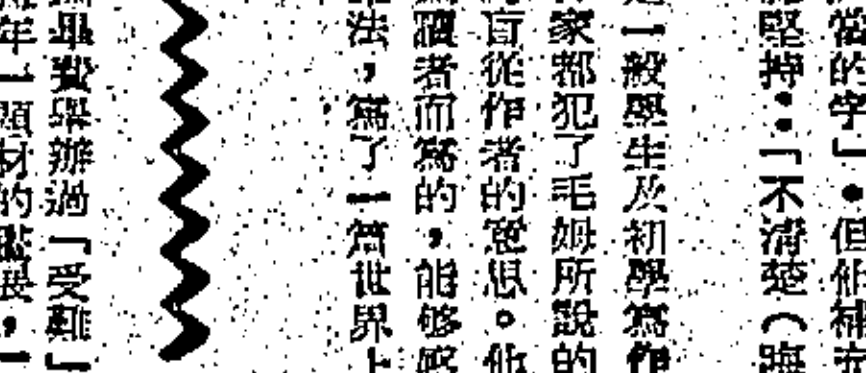 當的字」。但他補充
堅持：「不清楚（晦
一般學生及初學寫作
家都犯了毛姆所說的
盲從作者的意思。他
讀者而寫的，能够
法，寫了一篇世界上
舉辦過「受難」
年一題材的